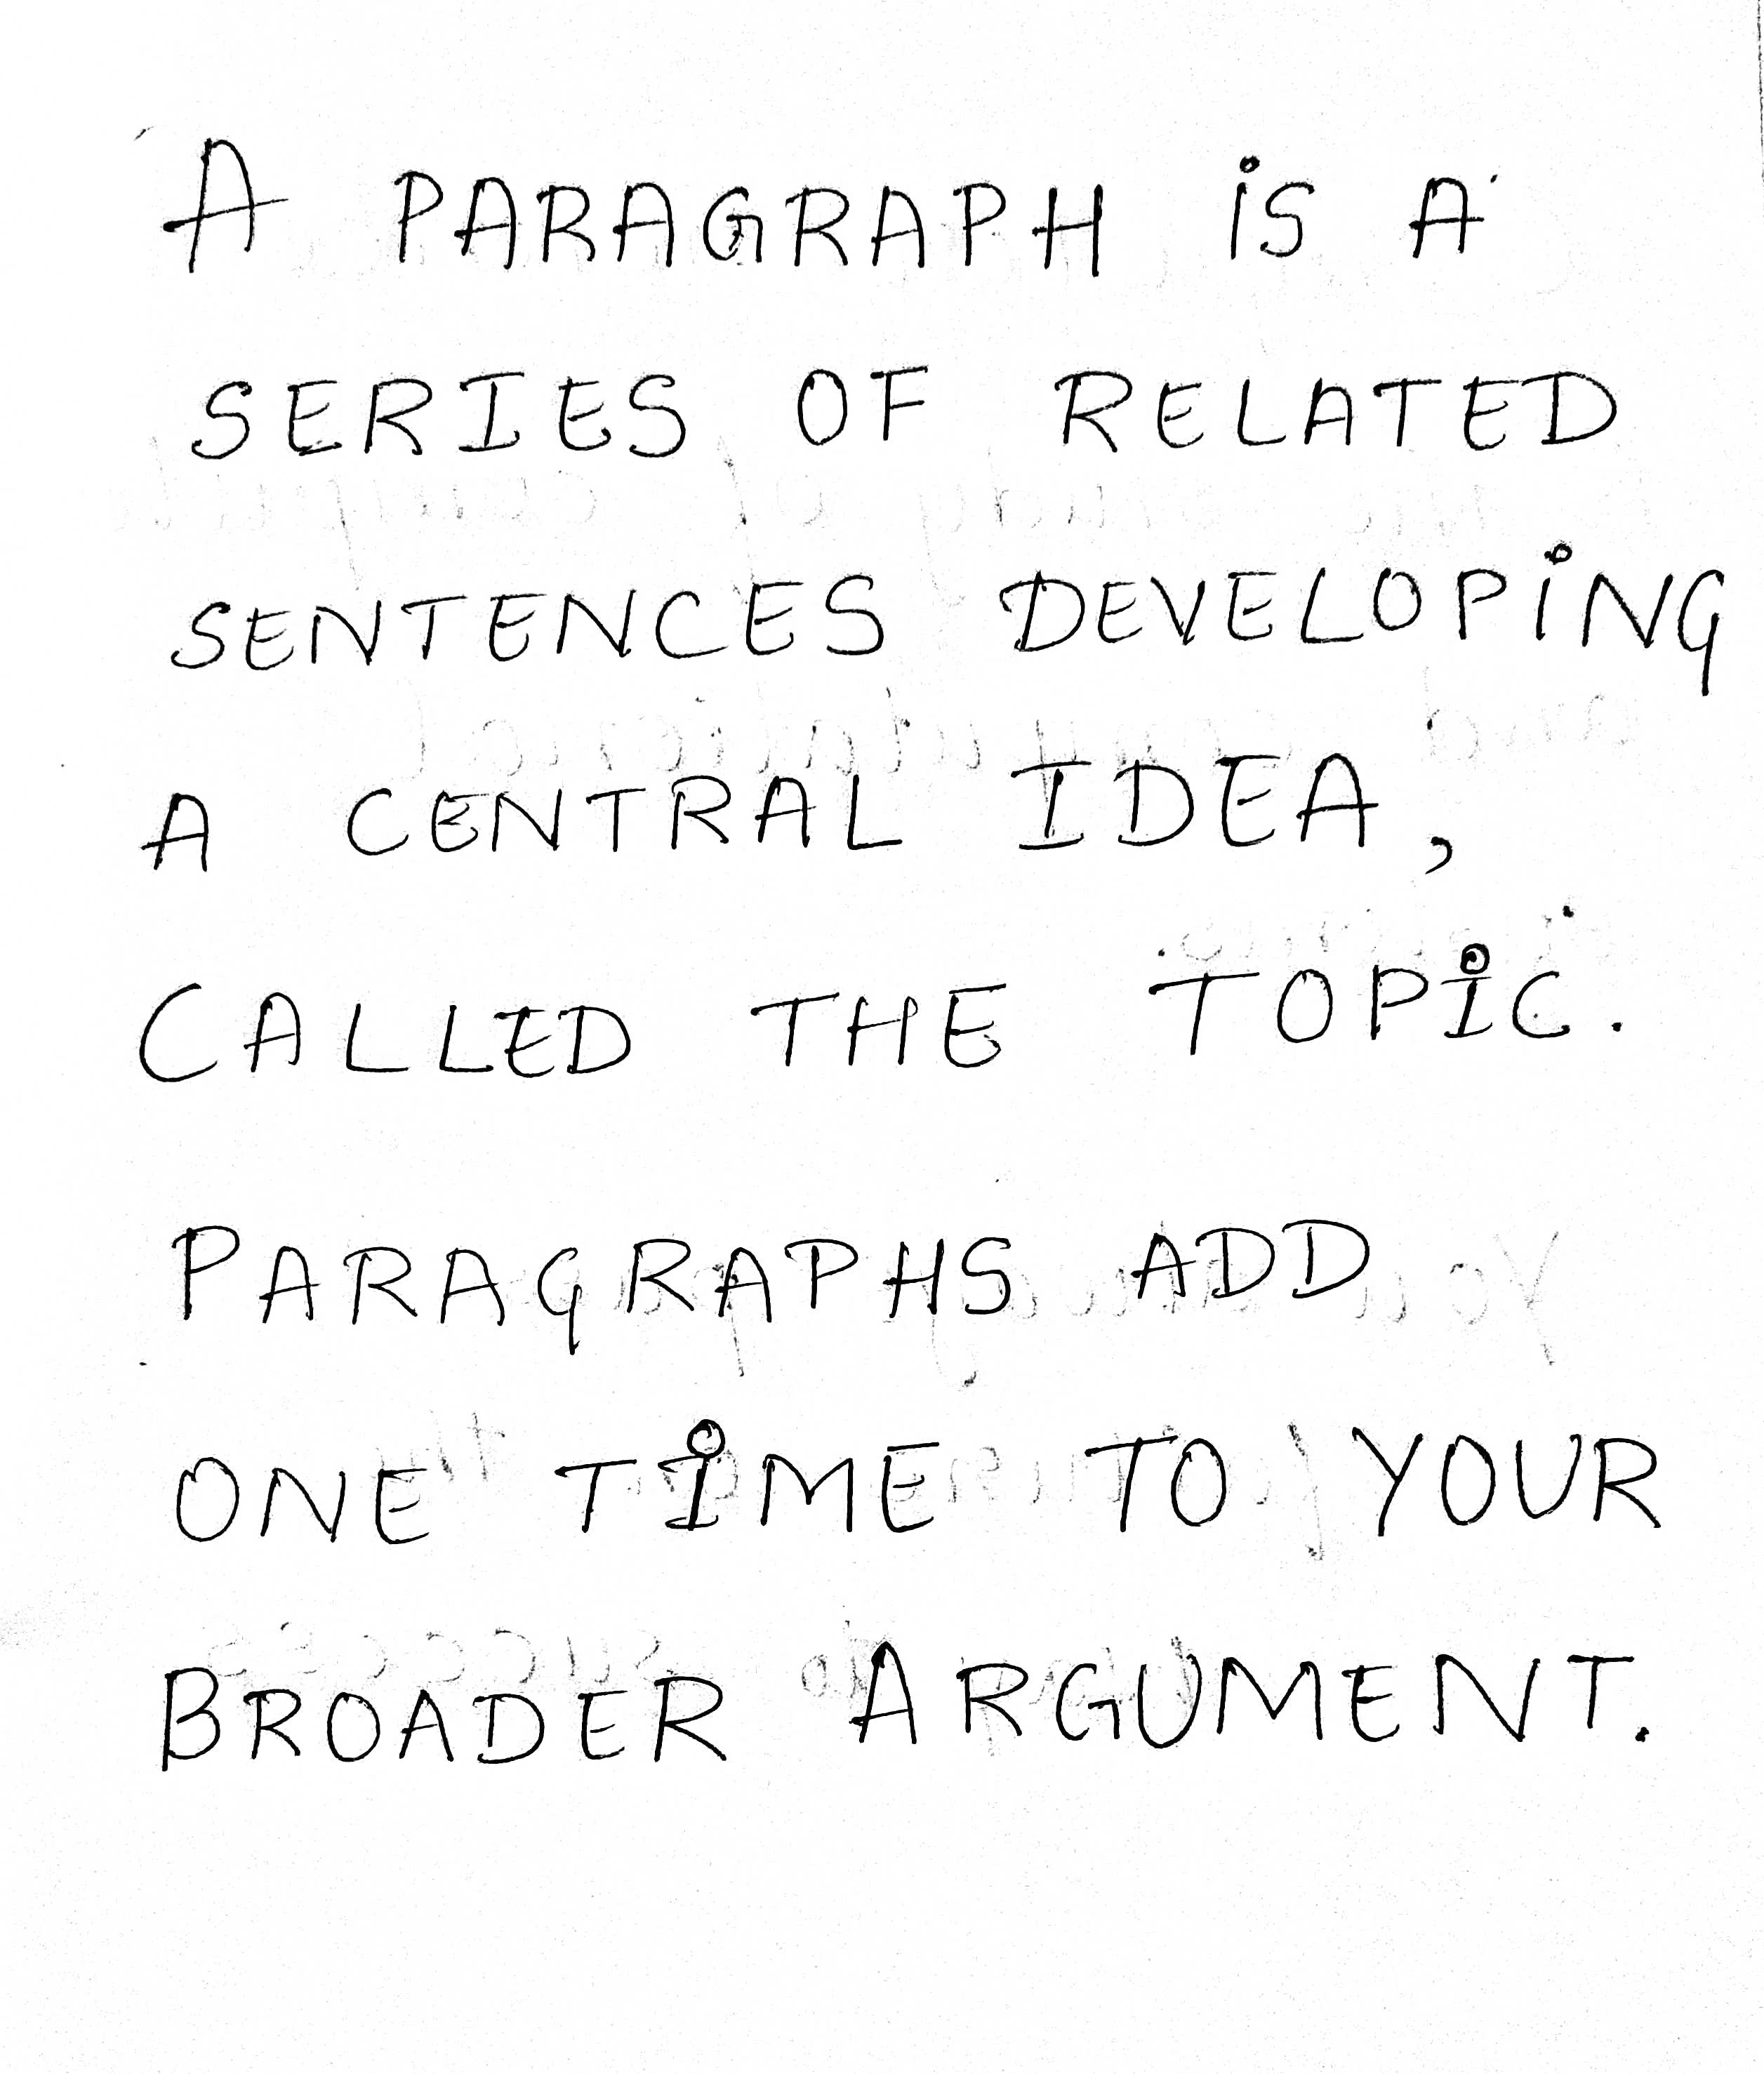 A PARAGRAPH iS A
SERIES OF RELATED
SENTENCES DEVELOPiNG
A CENTRAL IDEA,
CALLED THE TOPIC.
PARAGRAPHS ADD
ONE TIME TO YOUR
BROADER ARGUMENT.